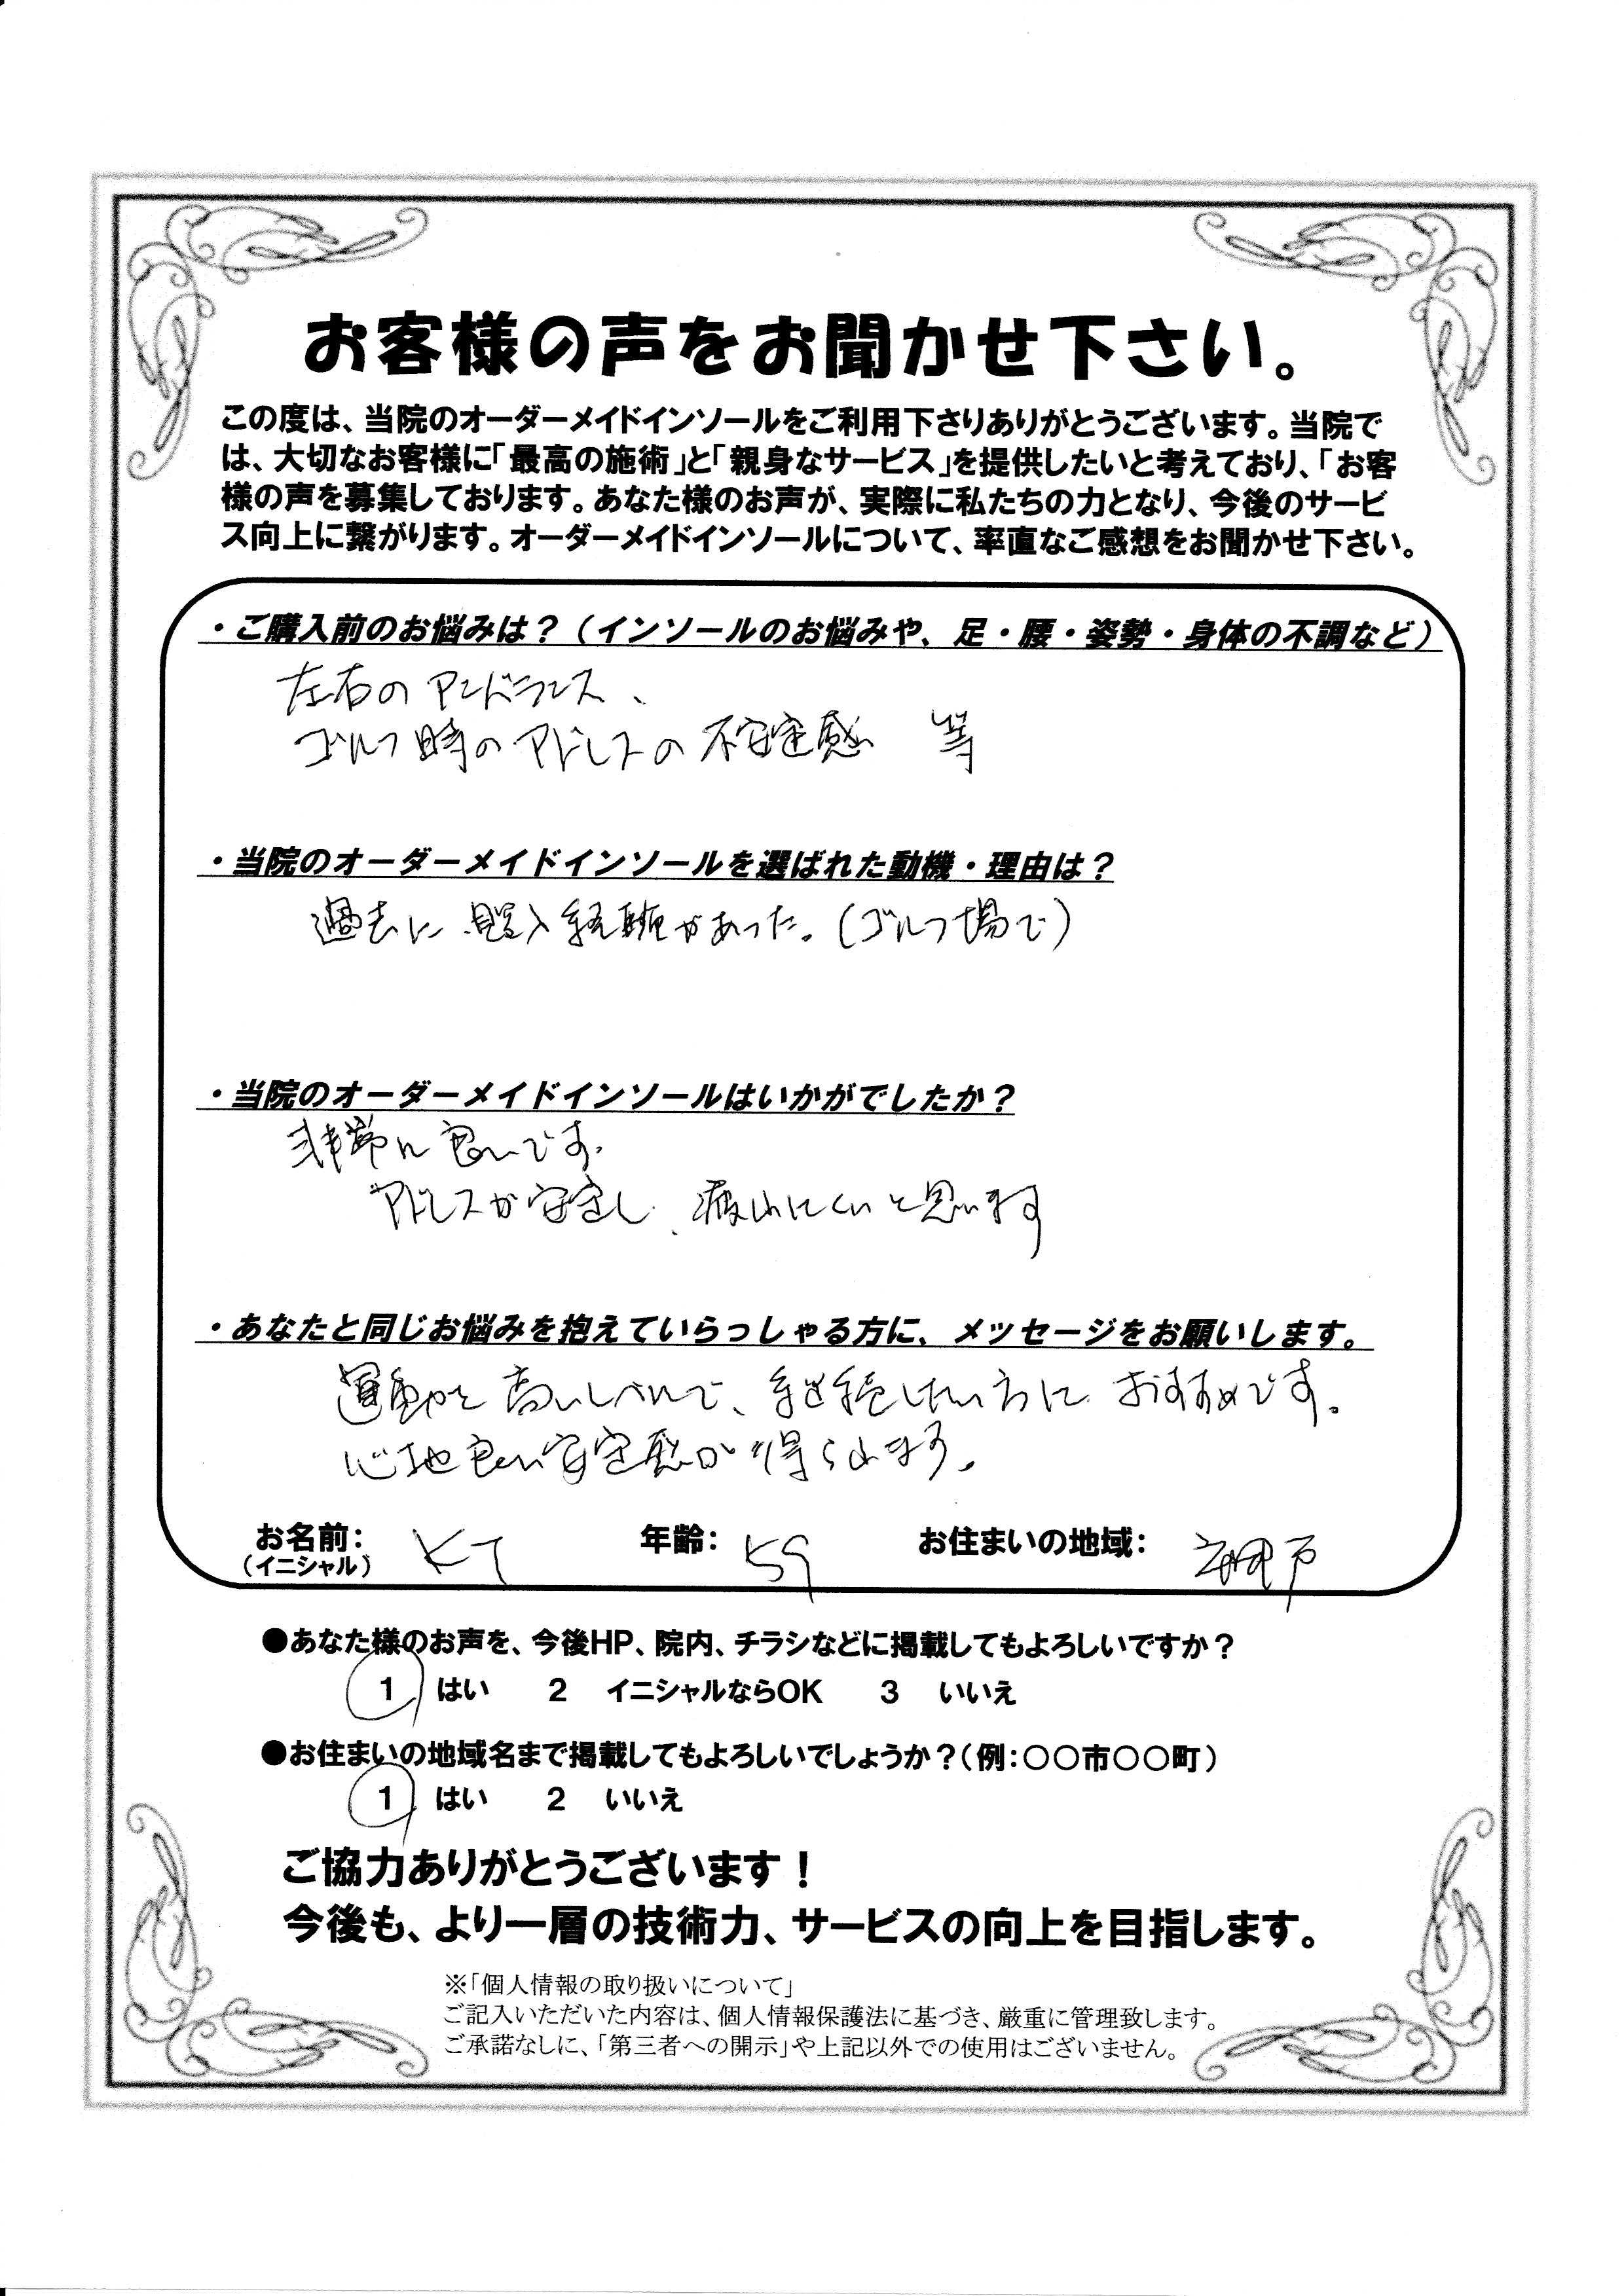 お客様の声をお聞かせ下さい。
この度は、当院のオーダーメイドインソールをご利用下さりありがとうございます。当院で
は、大切なお客様に「最高の施術」と「親身なサービス」を提供したいと考えており、「お客
様の声を募集しております。あなた様のお声が、実際に私たちの力となり、今後のサービ
ス向上に繋がります。オーダーメイドインソールについて、率直なご感想をお聞かせ下さい。
・ご購入前のお悩みは?(インソールのお悩みや、足・腰・姿勢・身体の不調など)
左右のアンバランス、
ゴルフ時のアドレスの不安定感 等
・当院のオーダーメイドインソールを選ばれた動機・理由は?
過去に購入経験があった。(ゴルフ場で)
・当院のオーダーメイドインソールはいかがでしたか?
非常に良いです。
アドレスが安定し、疲れにくいと思います
・あなたと同じお悩みを抱えていらっしゃる方に、メッセージをお願いします。
運動を高いレベルで、継続したい方におすすめです。
心地良い安定感が得られます。
お名前: KT 年齢: 59 お住まいの地域:
(イニシャル)
●あなた様のお声を、今後HP、院内、チラシなどに掲載してもよろしいですか?
1 はい 2 イニシャルならOK 3 いいえ
●お住まいの地域名まで掲載してもよろしいでしょうか?(例:○○市○○町)
1 はい 2 いいえ
ご協力ありがとうございます!
今後も、より一層の技術力、サービスの向上を目指します。
※「個人情報の取り扱いについて」
ご記入いただいた内容は、個人情報保護法に基づき、厳重に管理致します。
ご承諾なしに、「第三者への開示」や上記以外での使用はございません。